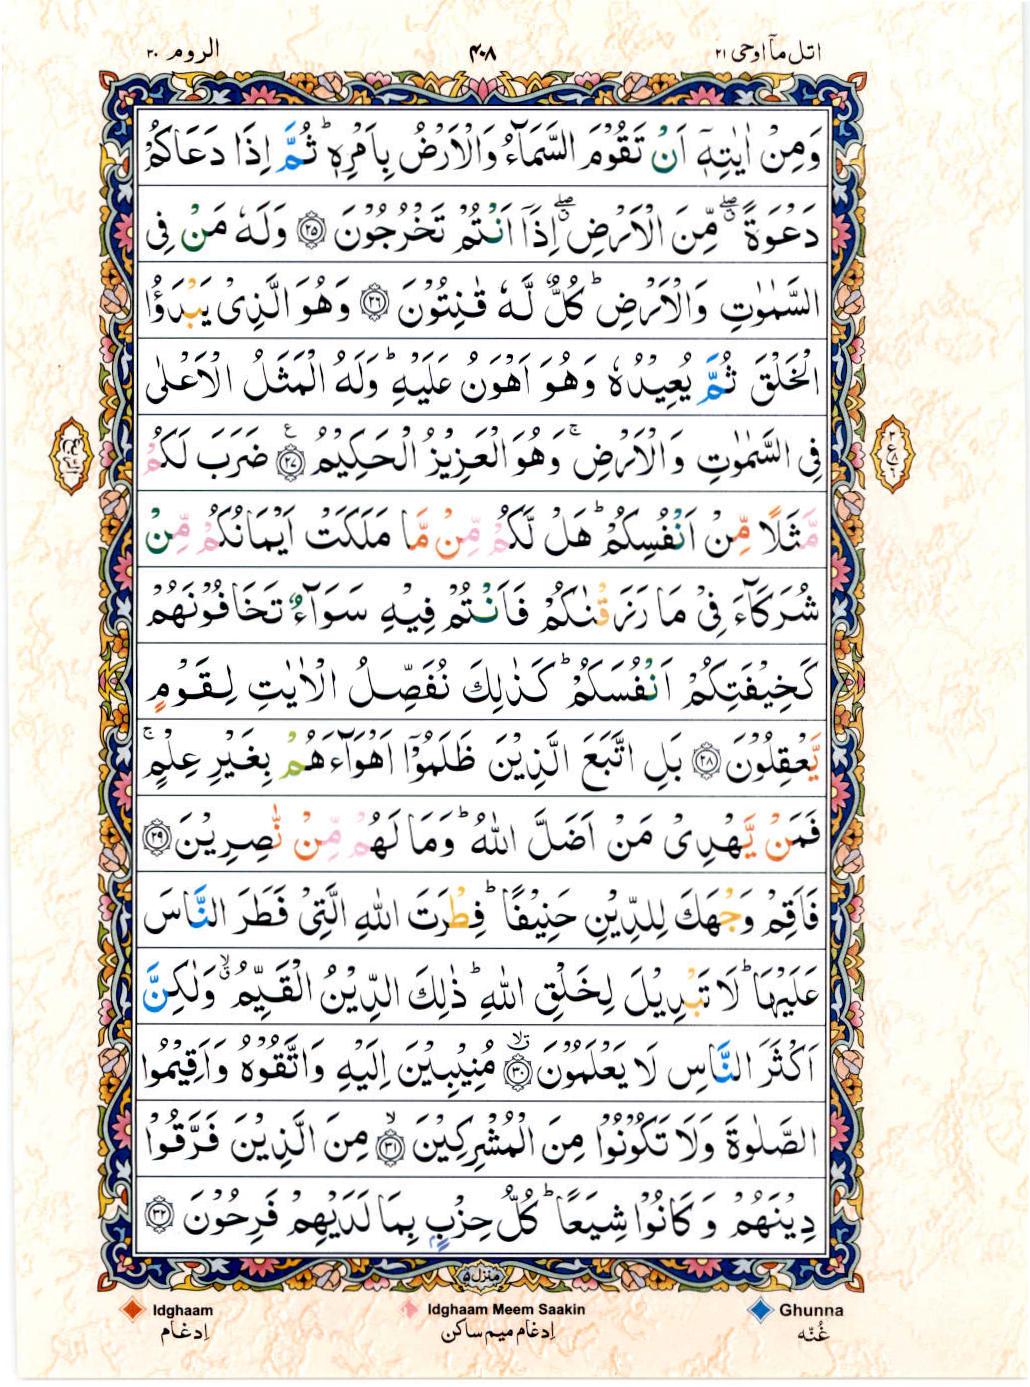 اتل مآ اوحی ٢١
٤٠٨
الروم ٣٠
وَمِنْ اٰيٰتِهٖٓ اَنْ تَقُوْمَ السَّمَآءُ وَالْاَرْضُ بِاَمْرِهٖ ؕ ثُمَّ اِذَا دَعَاكُمْ
دَعْوَةً ۖۗ مِّنَ الْاَرْضِ ۖۗ اِذَاۤ اَنْتُمْ تَخْرُجُوْنَ ﴿٢٥﴾ وَلَهٗ مَنْ فِى
السَّمٰوٰتِ وَالْاَرْضِ ؕ كُلٌّ لَّهٗ قٰنِتُوْنَ ﴿٢٦﴾ وَهُوَ الَّذِىْ يَبْدَؤُا
الْخَلْقَ ثُمَّ يُعِيْدُهٗ وَهُوَ اَهْوَنُ عَلَيْهِ ؕ وَلَهُ الْمَثَلُ الْاَعْلٰى
فِى السَّمٰوٰتِ وَالْاَرْضِ ۚ وَهُوَ الْعَزِيْزُ الْحَكِيْمُ ﴿٢٧﴾ ع ضَرَبَ لَكُمْ
مَّثَلًا مِّنْ اَنْفُسِكُمْ ؕ هَلْ لَّكُمْ مِّنْ مَّا مَلَكَتْ اَيْمَانُكُمْ مِّنْ
شُرَكَآءَ فِىْ مَا رَزَقْنٰكُمْ فَاَنْتُمْ فِيْهِ سَوَآءٌ تَخَافُوْنَهُمْ
كَخِيْفَتِكُمْ اَنْفُسَكُمْ ؕ كَذٰلِكَ نُفَصِّلُ الْاٰيٰتِ لِقَوْمٍ
يَّعْقِلُوْنَ ﴿٢٨﴾ بَلِ اتَّبَعَ الَّذِيْنَ ظَلَمُوْۤا اَهْوَآءَهُمْ بِغَيْرِ عِلْمٍ ۚ
فَمَنْ يَّهْدِىْ مَنْ اَضَلَّ اللّٰهُ ؕ وَمَا لَهُمْ مِّنْ نّٰصِرِيْنَ ﴿٢٩﴾
فَاَقِمْ وَجْهَكَ لِلدِّيْنِ حَنِيْفًا ؕ فِطْرَتَ اللّٰهِ الَّتِىْ فَطَرَ النَّاسَ
عَلَيْهَا ؕ لَا تَبْدِيْلَ لِخَلْقِ اللّٰهِ ؕ ذٰلِكَ الدِّيْنُ الْقَيِّمُ ۙۗ وَلٰكِنَّ
اَكْثَرَ النَّاسِ لَا يَعْلَمُوْنَ ﴿٣٠﴾ مُنِيْبِيْنَ اِلَيْهِ وَاتَّقُوْهُ وَاَقِيْمُوا
الصَّلٰوةَ وَلَا تَكُوْنُوْا مِنَ الْمُشْرِكِيْنَ ﴿٣١﴾ۙ مِنَ الَّذِيْنَ فَرَّقُوْا
دِيْنَهُمْ وَكَانُوْا شِيَعًا ؕ كُلُّ حِزْبٍۢ بِمَا لَدَيْهِمْ فَرِحُوْنَ ﴿٣٢﴾
منزل ٥
Idghaam Idghaam Meem Saakin Ghunna
اِدغام اِدغام میم ساکن غُنّه